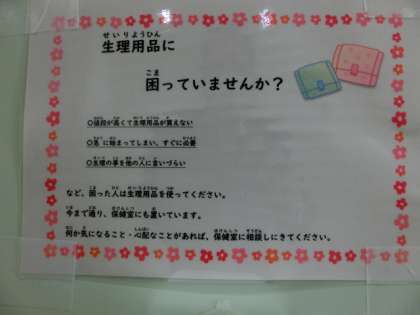 生理用品に
困っていませんか？
○値段が高くて生理用品が買えない
○急に始まってしまい、すぐに必要
○生理の事を他の人に言いづらい
など、困った人は生理用品を使ってください。
今まで通り、保健室にも置いています。
何か気になること・心配なことがあれば、保健室に相談しにきてください。